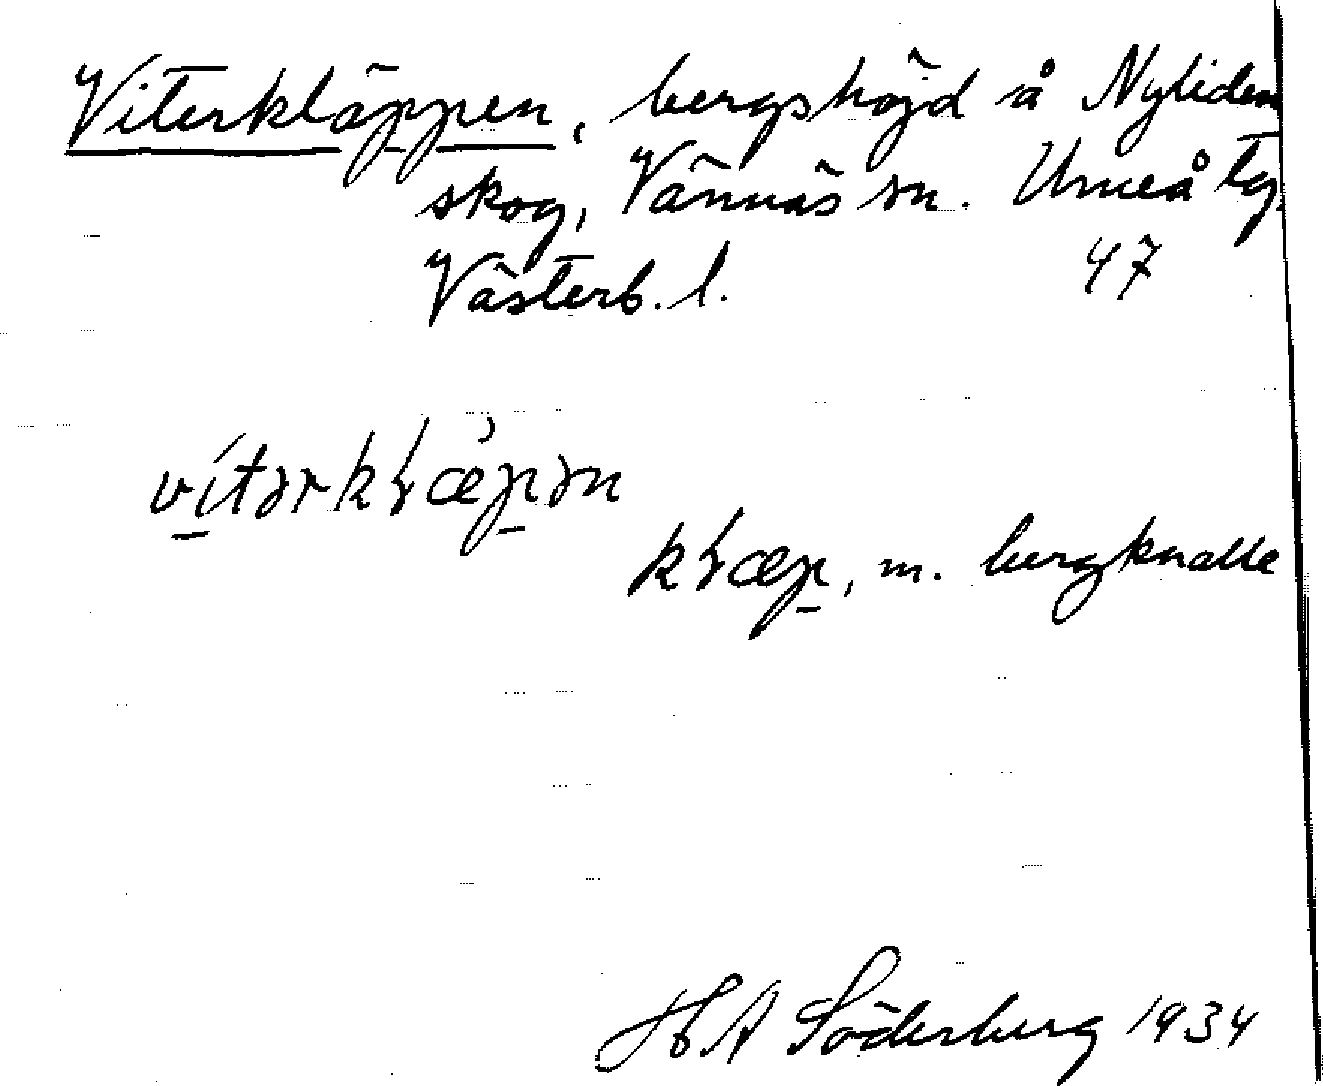 Viterkläppen, bergshöjd å Nyliden
skog, Vännäs sn. Umeå tg.
Västerb. l. 47
vı̲tərkɫæp̲ən
kɫæp̲, m. bergknalle
H A Söderberg 1934